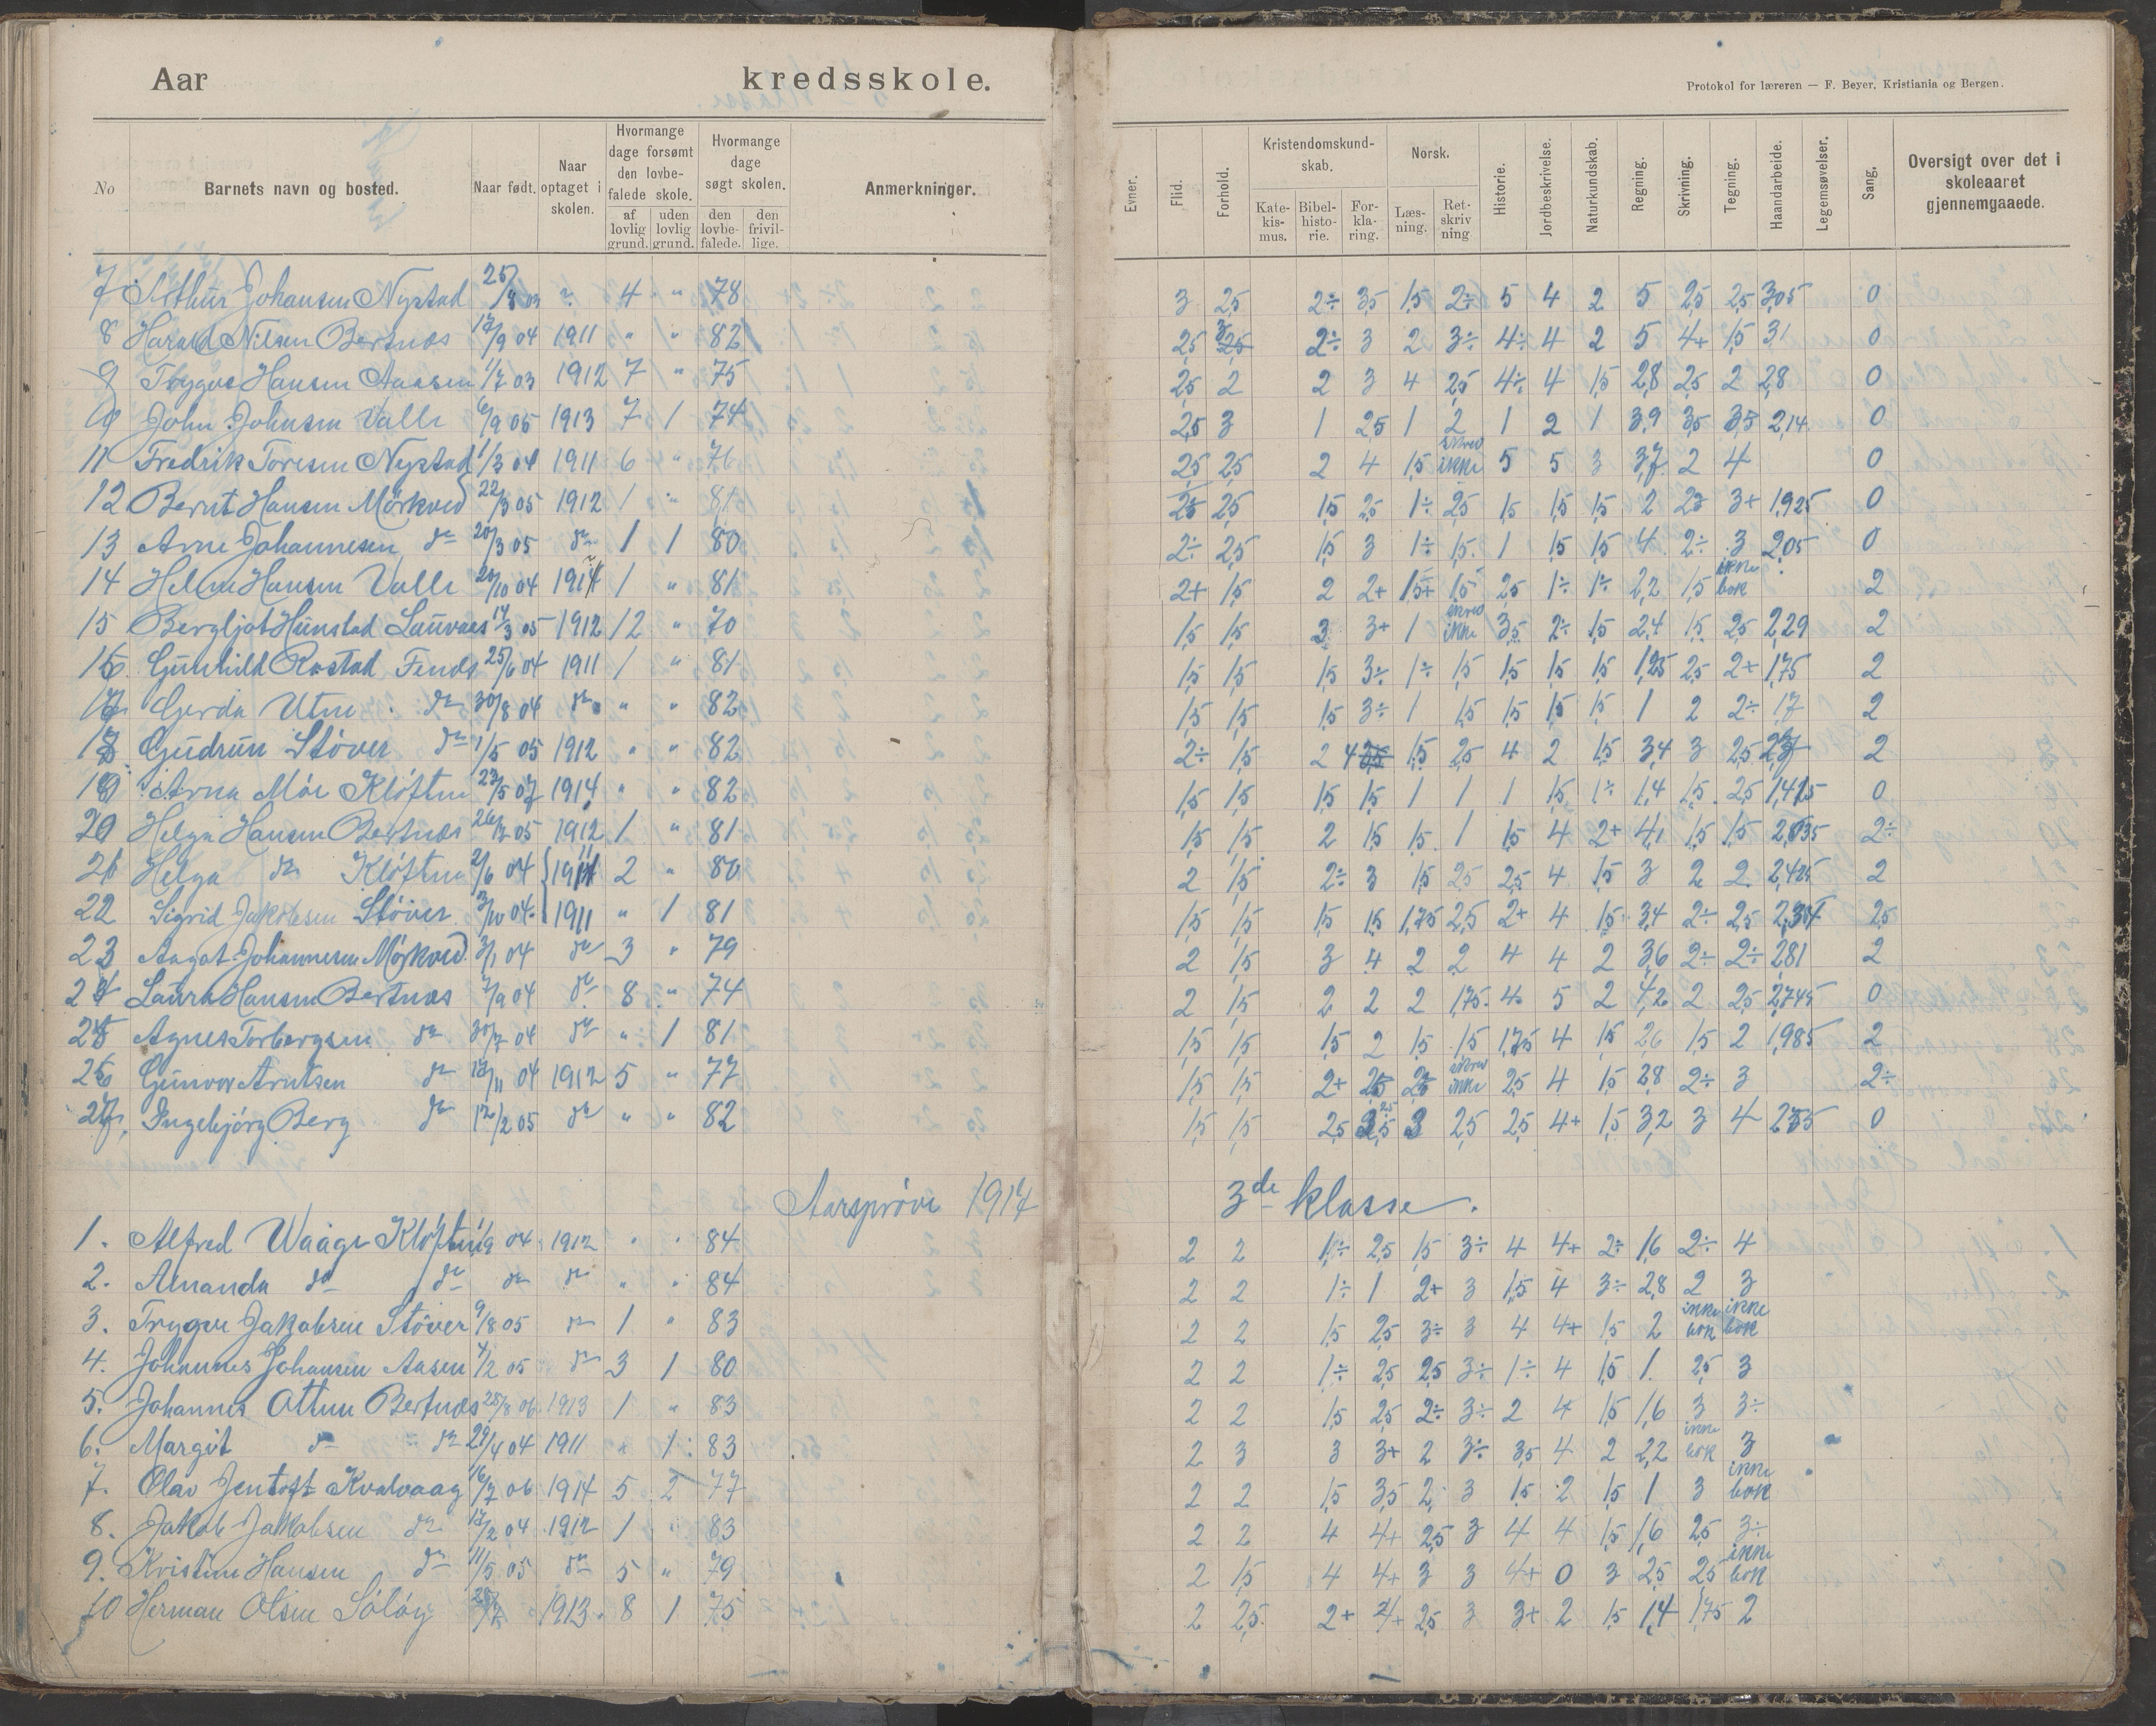 Aar kredsskole.
Protokol for læreren — F. Beyer, Kristiania og Bergen.
No Barnets navn og bosted. Naar født. Naar optaget i skolen. Hvormange dage forsømt den lovbefalede skole. af lovlig grund. uden lovlig grund. Hvormange dage søgt skolen. den lovbefalede. den frivillige. Anmerkninger. Evner. Flid. Forhold. Kristendomskundskab. Katekismus. Bibelhistorie. Forklaring. Norsk. Læsning. Retskrivning Historie. Jordbeskrivelse. Naturkundskab. Regning. Skrivning. Tegning. Haandarbeide. Legemsøvelser. Sang. Oversigt over det i skoleaaret gjennemgaaede.
7 Arthur Johansen Nystad 25/8 03 4 " 78 3 2,5 2÷ 3,5 1,5 2÷ 5 4 2 5 2,5 2,5 3,05 0
8 Harald Nilsen Bertnæs 17/9 04 1911 " " 82 2,5 3 2÷ 3 2 3÷ 4÷ 4 2 5 4+ 1,5 3,1 0
9 Trygve Hansen Aaasen 1/7 03 1912 7 " 75 2,5 2 2 3 4 2,5 4÷ 4 1,5 2,8 2,5 2 2,8 0
10 John Johnsen Valle 6/9 05 1913 7 1 74 2,5 3 1 2,5 1 2 1 2 1 3,9 3,5 3,5 2,14 0
11 Fredrik Toresen Nystad 1/3 04 1911 6 " 76 2,5 2,5 2 4 1,5 skrev ikke 5 5 3 3,7 2 4 0
12 Bernt Hansen Mörkved 22/3 05 1912 1 " 81 2,5 2,5 1,5 2,5 1÷ 2,5 1,5 1,5 1,5 2 3+ 1,925 0
13 Arne Johannesen do 20/3 05 do 1 1 80 2÷ 2,5 1,5 3 1÷ 1,5 1 1,5 1,5 4 2÷ 3 2,05 0
14 Helene Hansen Valle 20/10 04 1911 1 " 81 2+ 1,5 2 2+ 1,5+ 1,5 2,5 1÷ 1÷ 2,2 1,5 ikke bok 2
15 Bergljot Hunstad Lauvaas 14/3 05 1912 12 " 70 1,5 1,5 3 3+ 1 skrev ikke 3,5 2÷ 1,5 2,4 1,5 2,5 2,29 2
16 Gunhild Rostad Fenes 25/6 04 1911 1 " 81 1,5 1,5 1,5 3÷ 1÷ 1,5 1,5 1,5 1,5 1,25 2,5 2+ 1,75 2
17 Gerda Utne do 30/8 04 do " " 82 1,5 1,5 1,5 3÷ 1 1,5 1,5 1,5 1,5 1 2 2÷ 1,7 2
18 Gudrun Stöver do 1/5 05 1912 " " 82 2÷ 1,5 2 4 1,5 2,5 4 2 1,5 3,4 3 2,5 2
19 Arna Moe Klöften 23/5 07 1914 " " 82 1,5 1,5 1,5 1,5 1 1 1 1,5 1÷ 1,4 1,5 2,5 1,415 0
20 Helga Hansen Bertnæs 26/7 05 1912 1 " 81 1,5 1,5 2 1,5 1,5 1 1,5 4 2+ 4,1 1,5 1,5 2÷
21 Helga do Klöften 2/6 04 1911 2 " 80 2 1,5 2÷ 3 1,5 2,5 2,5 4 1,5 3 2 2 2,425 2
22 Sigrid Jakobsen Stöver 13/10 04 1911 " 1 81 1,5 1,5 1,5 1,5 1,75 2,5 2+ 4 1,5 3,4 2÷ 2,5 2,5
23 Aagot Johannesen Mörkved 3/1 04 do 3 " 79 2 1,5 3 4 2 2 4 4 2 3,6 2÷ 2÷ 2,81 2
24 Laura Hansen Bertnæs 7/9 04 do 8 " 74 2 1,5 2 2 2 1,75 4 5 2 4,2 2 2,5 2,745 0
25 Agnes Torbergsen do 30/7 04 do " 1 81 1,5 1,5 1,5 2 1,5 1,5 1,75 4 1,5 2,6 1,5 2 1,985 2
26 Gunvor Arntsen do 18/11 04 1912 5 " 77 1,5 1,5 2+ 2,5 2,5 skrev ikke 2,5 4 1,5 2,8 2÷ 3 2÷
27 Ingebjörg Berg do 12/2 05 do " " 82 1,5 1,5 2,5 3 2,5 2,5 4+ 1,5 3,2 3 4 0
Aarspröve 1914 3de klasse.
1. Alfred Waage Klöften 1/9 04 1912 " " 84 2 2 1÷ 2,5 1,5 3÷ 4 4+ 2÷ 1,6 2÷ 4
2. Amanda do do do do " " 84 2 2 1÷ 1 2+ 3 1,5 4 3÷ 2,8 2 3
3. Trygve Jakobsen Stöver 9/8 05 do 1 " 83 2 2 1,5 2,5 3÷ 3 4 4+ 1,5 2 ikke bok ikke bok
4. Johannes Johansen Aasen 4/2 05 do 3 1 80 2 2 1÷ 2,5 2,5 3÷ 1÷ 4 1,5 1 2,5 3
5. Johannes Ottem Bertnæs 25/8 06 1913 1 " 83 2 2 1,5 2,5 2÷ 3÷ 2 4 1,5 1,6 3 3÷
6. Margit do do 29/4 04 1911 " 1 83 2 3 3 3+ 2 3÷ 3,5 4 2 2,2 ikke bok 3
7. Olav Jentoft Kvalvaag 16/7 06 1914 5 2 77 2 2 1,5 3,5 2 3 1,5 2 1,5 1 3 ikke bok
8. Jakob Jakobsen do 17/2 04 1912 1 " 83 2 2 4 4+ 2,5 3 4 4 1,5 1,6 2,5 3÷
9. Kristine Hansen do 11/5 05 do 5 " 79 2 1,5 4 4+ 3 3 4+ 0 3 2,5 2,5 ikke bok
10 Herman Olsen Sölöy 1913 8 1 75 2 2,5 2+ 4+ 2,5 3 3+ 2 1,5 1,4 1,75 2